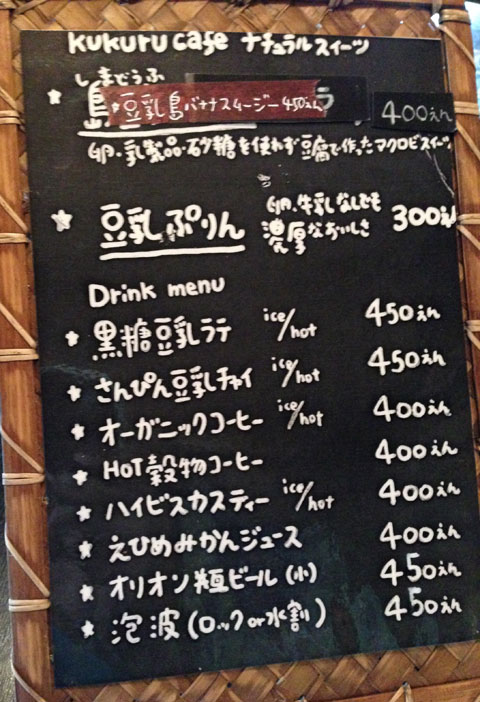 kukuru cafe ナチュラルスイーツ
しまどうふ
★ 島 豆乳島バナナスムージー 450えん ラ 400えん
卵・乳製品・砂糖を使わず豆腐で作ったマクロビスイーツ
★ 豆乳ぷりん 卵、牛乳なしでも 300えん
濃厚なおいしさ
Drink menu
★ 黒糖豆乳ラテ ice/hot 450えん
★ さんぴん豆乳チャイ ice/hot 450えん
★ オーガニックコーヒー ice/hot 400えん
★ HOT穀物コーヒー 400えん
★ ハイビスカスティー ice/hot 400えん
★ えひめみかんジュース 400えん
★ オリオン瓶ビール (小) 450えん
★ 泡波 (ロック or 水割) 450えん